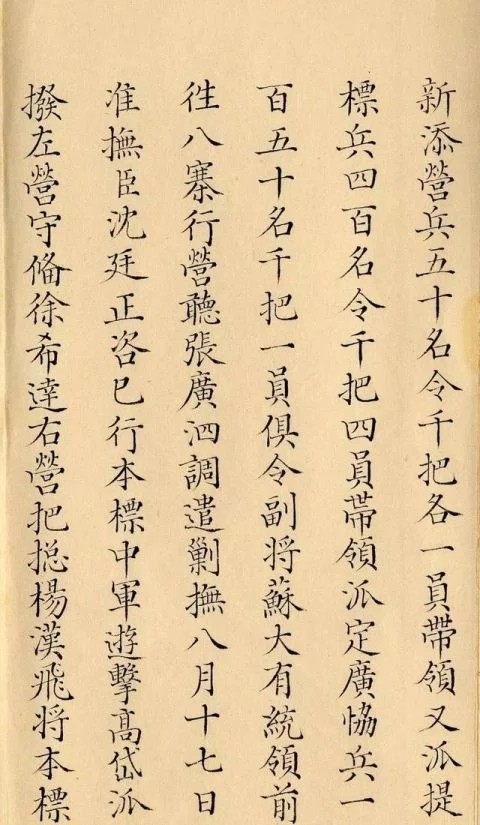 新添營兵五十名令千把各一員帶領又派提
標兵四百名令千把四員帶領派定廣恊兵一
百五十名千把一員俱令副將蘇大有統領前
徃八寨行營聽張廣泗調遣剿撫八月十七日
准撫臣沈廷正咨已行本標中軍遊擊高岱派
撥左營守俻徐希達右營把捴楊漢飛將本標